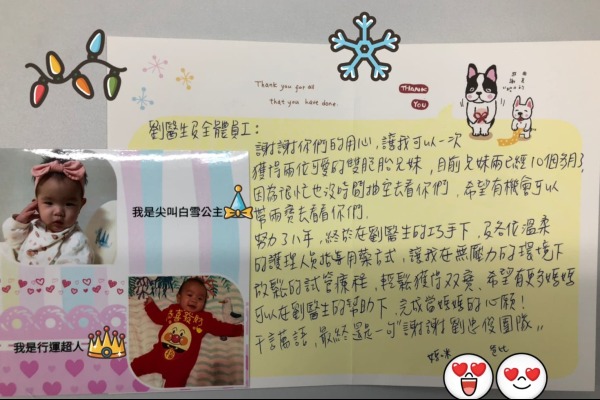 Thank you for all
that you have done.
THANK
YOU
劉醫生及全體員工:
謝謝你們的用心,讓我可以一次
獲得兩位可愛的雙胞胎兄妹,目前兄妹兩已經10個多月了
因為很忙也沒時間抽空去看你們,希望有機會可以
帶兩寶去看看你們.
努力了八年,終於在劉醫生的巧手下,及各位溫柔
的護理人員指導用藥之下,讓我在無壓力的環境下
放鬆的試管療程,輕鬆獲得双寶、希望有更多媽媽
可以在劉醫生的幫助下,完成當媽媽的心願!
千言萬語,最終還是一句"謝謝劉志保團隊"
媽咪 爸比
我是尖叫白雪公主
我是行運超人